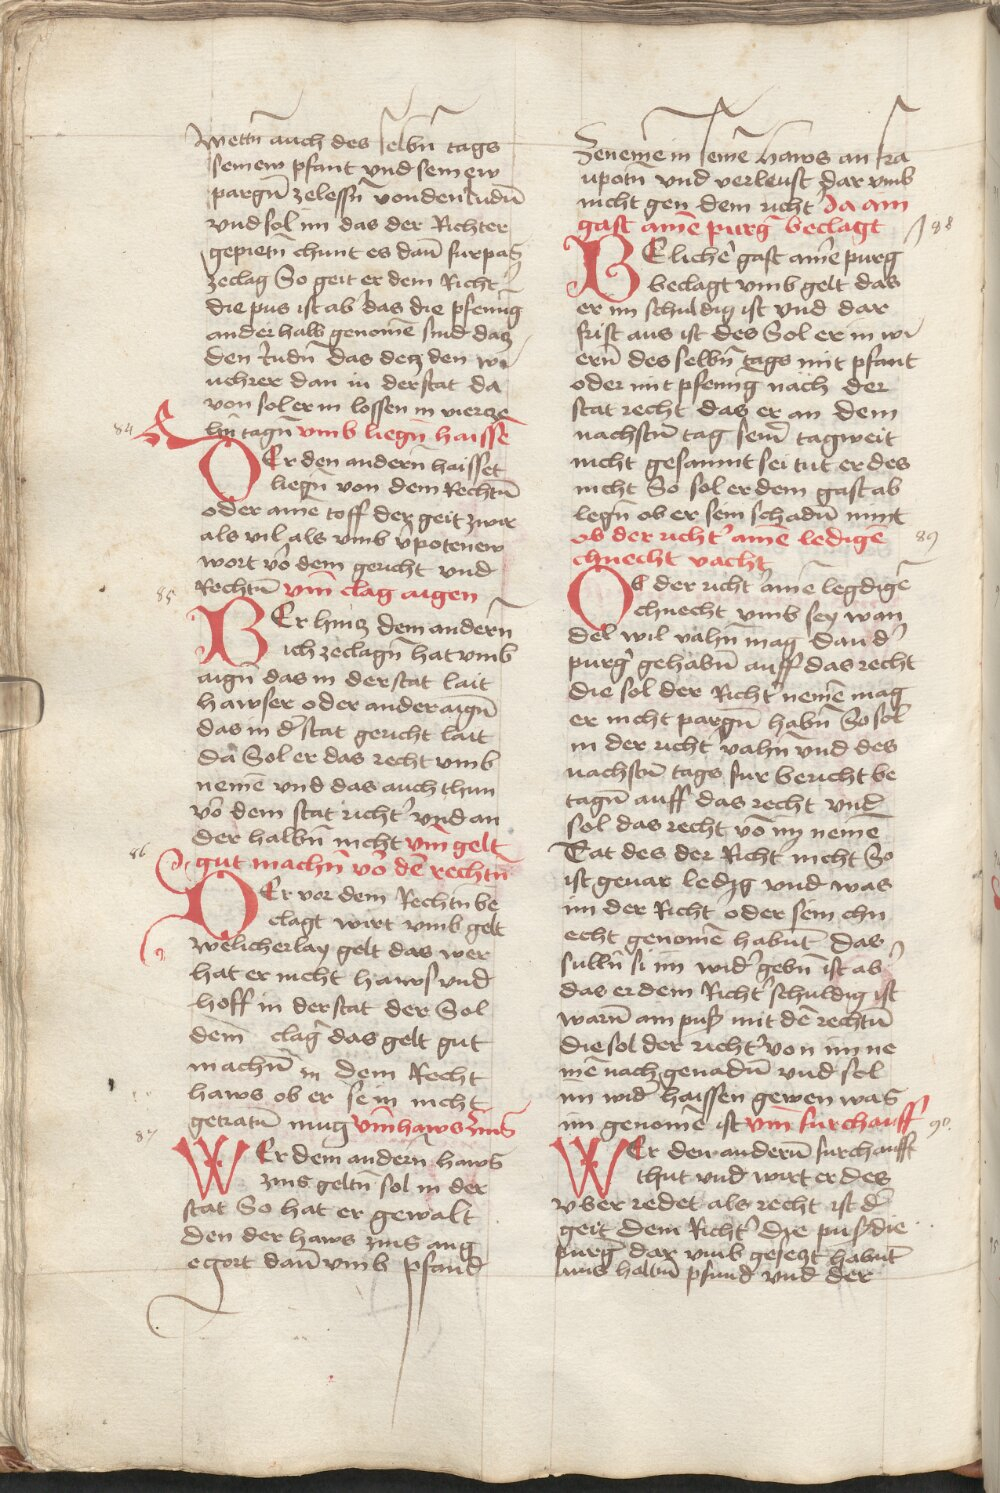 wettn̄ auch des selbn̄ tags
seinew pfant vnd seinew
pargn̄ zelessn̄ von den Iudn̄
vnd sol im das der Richter
gepietn̄ chunt es dan̄ furpas
zeclag So geit er dem Richt̾
die pus ist ab̾ das die pfening
anderhalb genomē sind daz
den Iudn̄ das dez den wū
uchrer dan in der stat da
von sol er in lossen in vierze
hn̄ tagn̄ vmb liegn̄ haissē
84
Er den andern̄ haisset
liegn̄ von dem Rechtn̄
oder aine toff der geit zwir
als vil als vmb v̾potenew
wort vō dem gericht vnd
Rechtn̄ vm̄ clag aigen
85
Er hinz dem andern̄
ich zeclagn̄ hat vmb
aign̄ das in der stat lait
hawser oder ander aign̄
das in d̾ stat gericht lait
da Sol er das recht vmb
nemē vnd das auch thun
vō dem stat richt̾ vnd an
der halbn̄ nicht vm̄ gelt
86
gut machn̄ vō dē rechtn̄
Er vor dem Rechtn̄ be
clagt wirt vmb gelt
welicherlay gelt das wer
hat er nicht haws vnd
hoff in der stat der Sol
dem clag̾ das gelt gut
machn̄ in dem Recht
haws ob er sein nicht
getratn̄ mug vm̄ haws zins
87
WEr dem andern̄ haws
zins geltn̄ sol in der
stat So hat er gewalt
den der haws zins ang
egort dan̄ vmb pfand
Zenemē in seinē haws an fra
upotn̄ vnd verleust dar vmb
nicht gen dem richt̾ Da ain
gast ainē purg̾ beclagt
88
Elich̾ gast ain̾ē purg
beclagt vmb gelt das
er im schuldig ist vnd dar
frist aus ist des Sol er in wi
ern̄ des selbn̄ tags mit pfant
oder mit pfening nach der
stat recht das er an dem
nachstn̄ tag sein̄ tagweit
nicht gesaumt sei tut er des
nicht So sol er dem gast ab
legn̄ ob er sein schadn̄ nimt
ob der richt̾ ainē ledigē
89
chnecht vacht
Ob der richt̾ ainē legdigē
chnecht vmb sey wan
del wil vahn̄ mag dan̄ d̾
purg̾ gehabn̄ auff das recht
die sol der Richt̾ nemē mag
er nicht pargn̄ habn̄ So sol
in der richt̾ vahn̄ vnd des
nachstn̄ tags fur bericht be
tagn̄ auff das recht vnd
sol das recht vō im nemē
Tat des der Richt̾ nicht So
ist genar ledig vnd was
im der Richt̾ oder sein chn
echt genomē habnt das
sulln̄ si im wid̾ gebn̄ ist ab̾
das er dem Richt̾ schuldig ist
warn̄ am puß mit dē rechtn̄
die sol der richt̾ von im ne
mē nach genadn̄ vnd sol
im wid̾ haissen gewen was
im genomē ist vm̄ furchauff
90.
WEr den andern̄ furchaufft
thut vnd wirt er des
vber redet als recht ist d̾
geit dem Richt̾ die puß die
purg̾ dar vmb gesetzt habnt
uns halbn̄ pfund vnd der